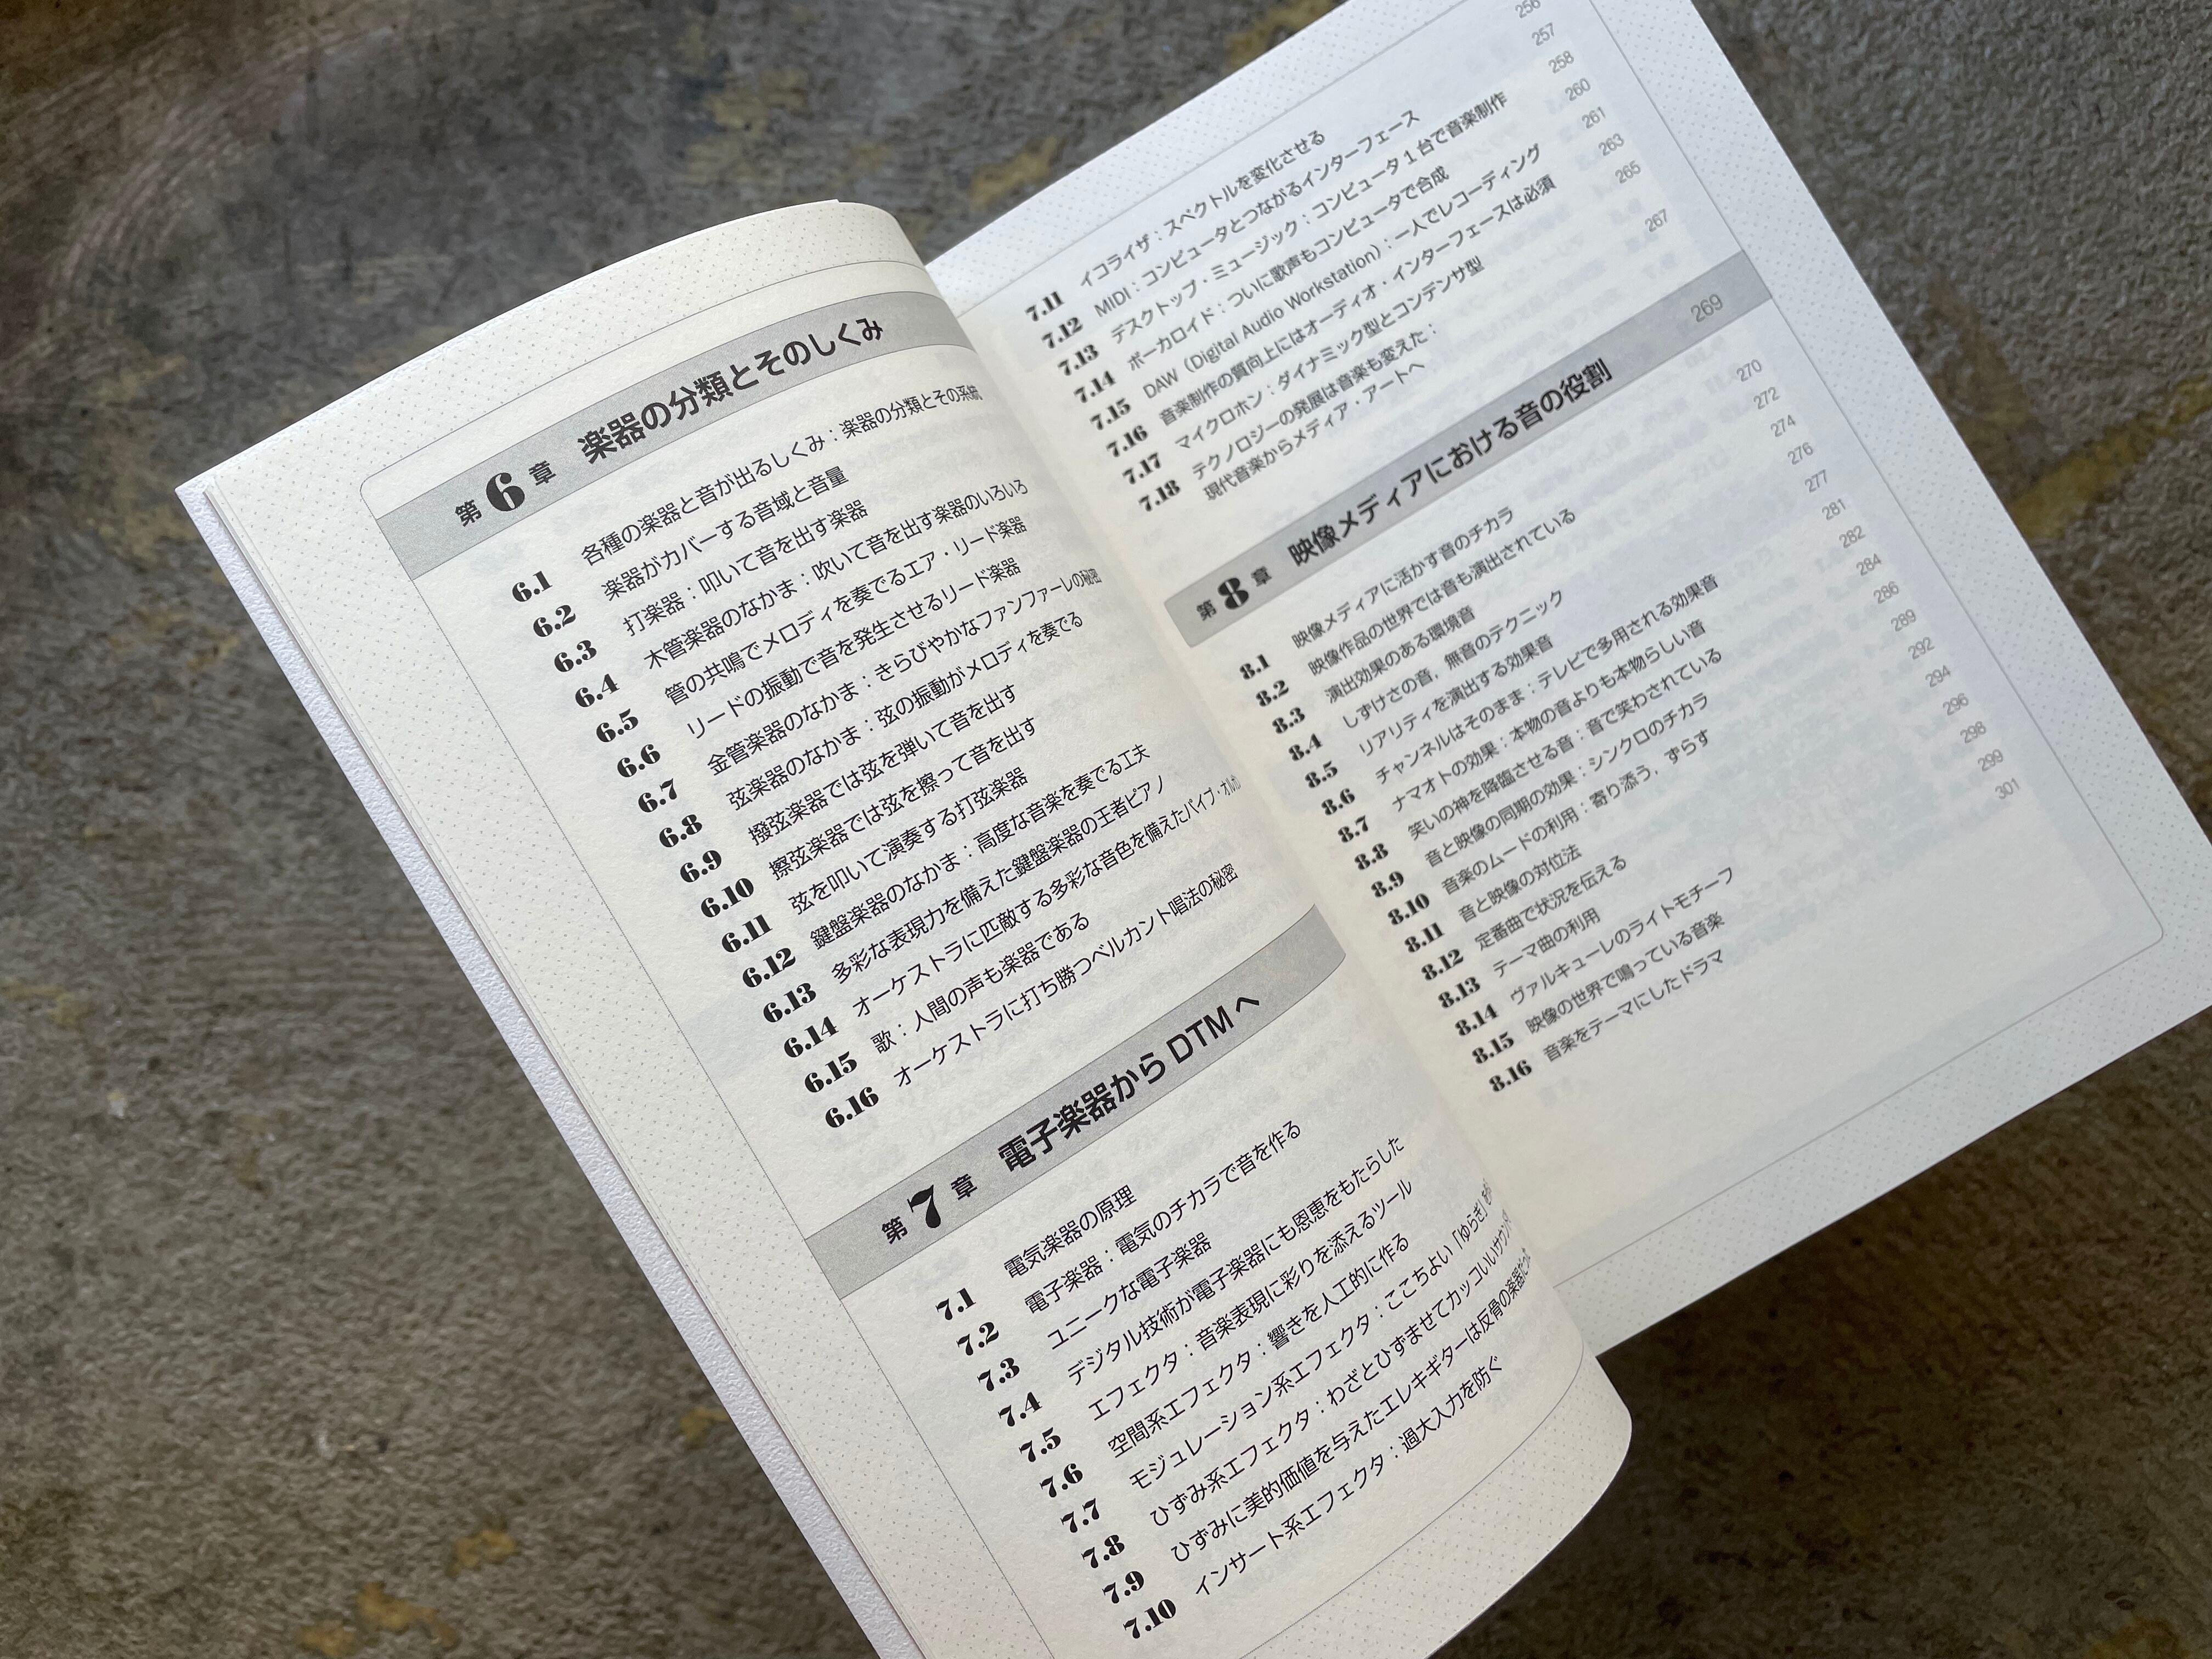 第6章 楽器の分類とそのしくみ
6.1 各種の楽器と音が出るしくみ：楽器の分類とその系統
6.2 楽器がカバーする音域と音量
6.3 打楽器：叩いて音を出す楽器
6.4 木管楽器のなかま：吹いて音を出す楽器のいろいろ
6.5 管の共鳴でメロディを奏でるエア・リード楽器
6.6 リードの振動で音を発生させるリード楽器
6.7 金管楽器のなかま：きらびやかなファンファーレの秘密
6.8 弦楽器のなかま：弦の振動がメロディを奏でる
6.9 撥弦楽器では弦を弾いて音を出す
6.10 擦弦楽器では弦を擦って音を出す
6.11 弦を叩いて演奏する打弦楽器
6.12 鍵盤楽器のなかま：高度な音楽を奏でる工夫
6.13 多彩な表現力を備えた鍵盤楽器の王者ピアノ
6.14 オーケストラに匹敵する多彩な音色を備えたパイプ・オルガ
6.15 歌：人間の声も楽器である
6.16 オーケストラに打ち勝つベルカント唱法の秘密
第7章 電子楽器からDTMへ
7.1 電気楽器の原理
7.2 電子楽器：電気のチカラで音を作る
7.3 ユニークな電子楽器
7.4 デジタル技術が電子楽器にも恩恵をもたらした
7.5 エフェクタ：音楽表現に彩りを添えるツール
7.6 空間系エフェクタ：響きを人工的に作る
7.7 モジュレーション系エフェクタ：ここちよい「ゆらぎ」を
7.8 ひずみ系エフェクタ：わざとひずませてカッコいいサウンド
7.9 ひずみに美的価値を与えたエレキギターは反骨の楽器だっ
7.10 インサート系エフェクタ：過大入力を防ぐ
7.11 イコライザ：スペクトルを変化させる 256
7.12 MIDI：コンピュータとつながるインターフェース 257
7.13 デスクトップ・ミュージック：コンピュータ1台で音楽制作 258
7.14 ボーカロイド：ついに歌声もコンピュータで合成 260
7.15 DAW（Digital Audio Workstation）：一人でレコーディング 261
7.16 音楽制作の質向上にはオーディオ・インターフェースは必須 263
7.17 マイクロホン：ダイナミック型とコンデンサ型 265
7.18 テクノロジーの発展は音楽も変えた：
現代音楽からメディア・アートへ 267
第8章 映像メディアにおける音の役割 269
8.1 映像メディアに活かす音のチカラ 270
8.2 映像作品の世界では音も演出されている 272
8.3 演出効果のある環境音 274
8.4 しずけさの音，無音のテクニック 276
8.5 リアリティを演出する効果音 277
8.6 チャンネルはそのまま：テレビで多用される効果音 281
8.7 ナマオトの効果：本物の音よりも本物らしい音 282
8.8 笑いの神を降臨させる音：音で笑わされている 284
8.9 音と映像の同期の効果：シンクロのチカラ 286
8.10 音楽のムードの利用：寄り添う，ずらす 289
8.11 音と映像の対位法 292
8.12 定番曲で状況を伝える 294
8.13 テーマ曲の利用 296
8.14 ヴァルキューレのライトモチーフ 298
8.15 映像の世界で鳴っている音楽 299
8.16 音楽をテーマにしたドラマ 301